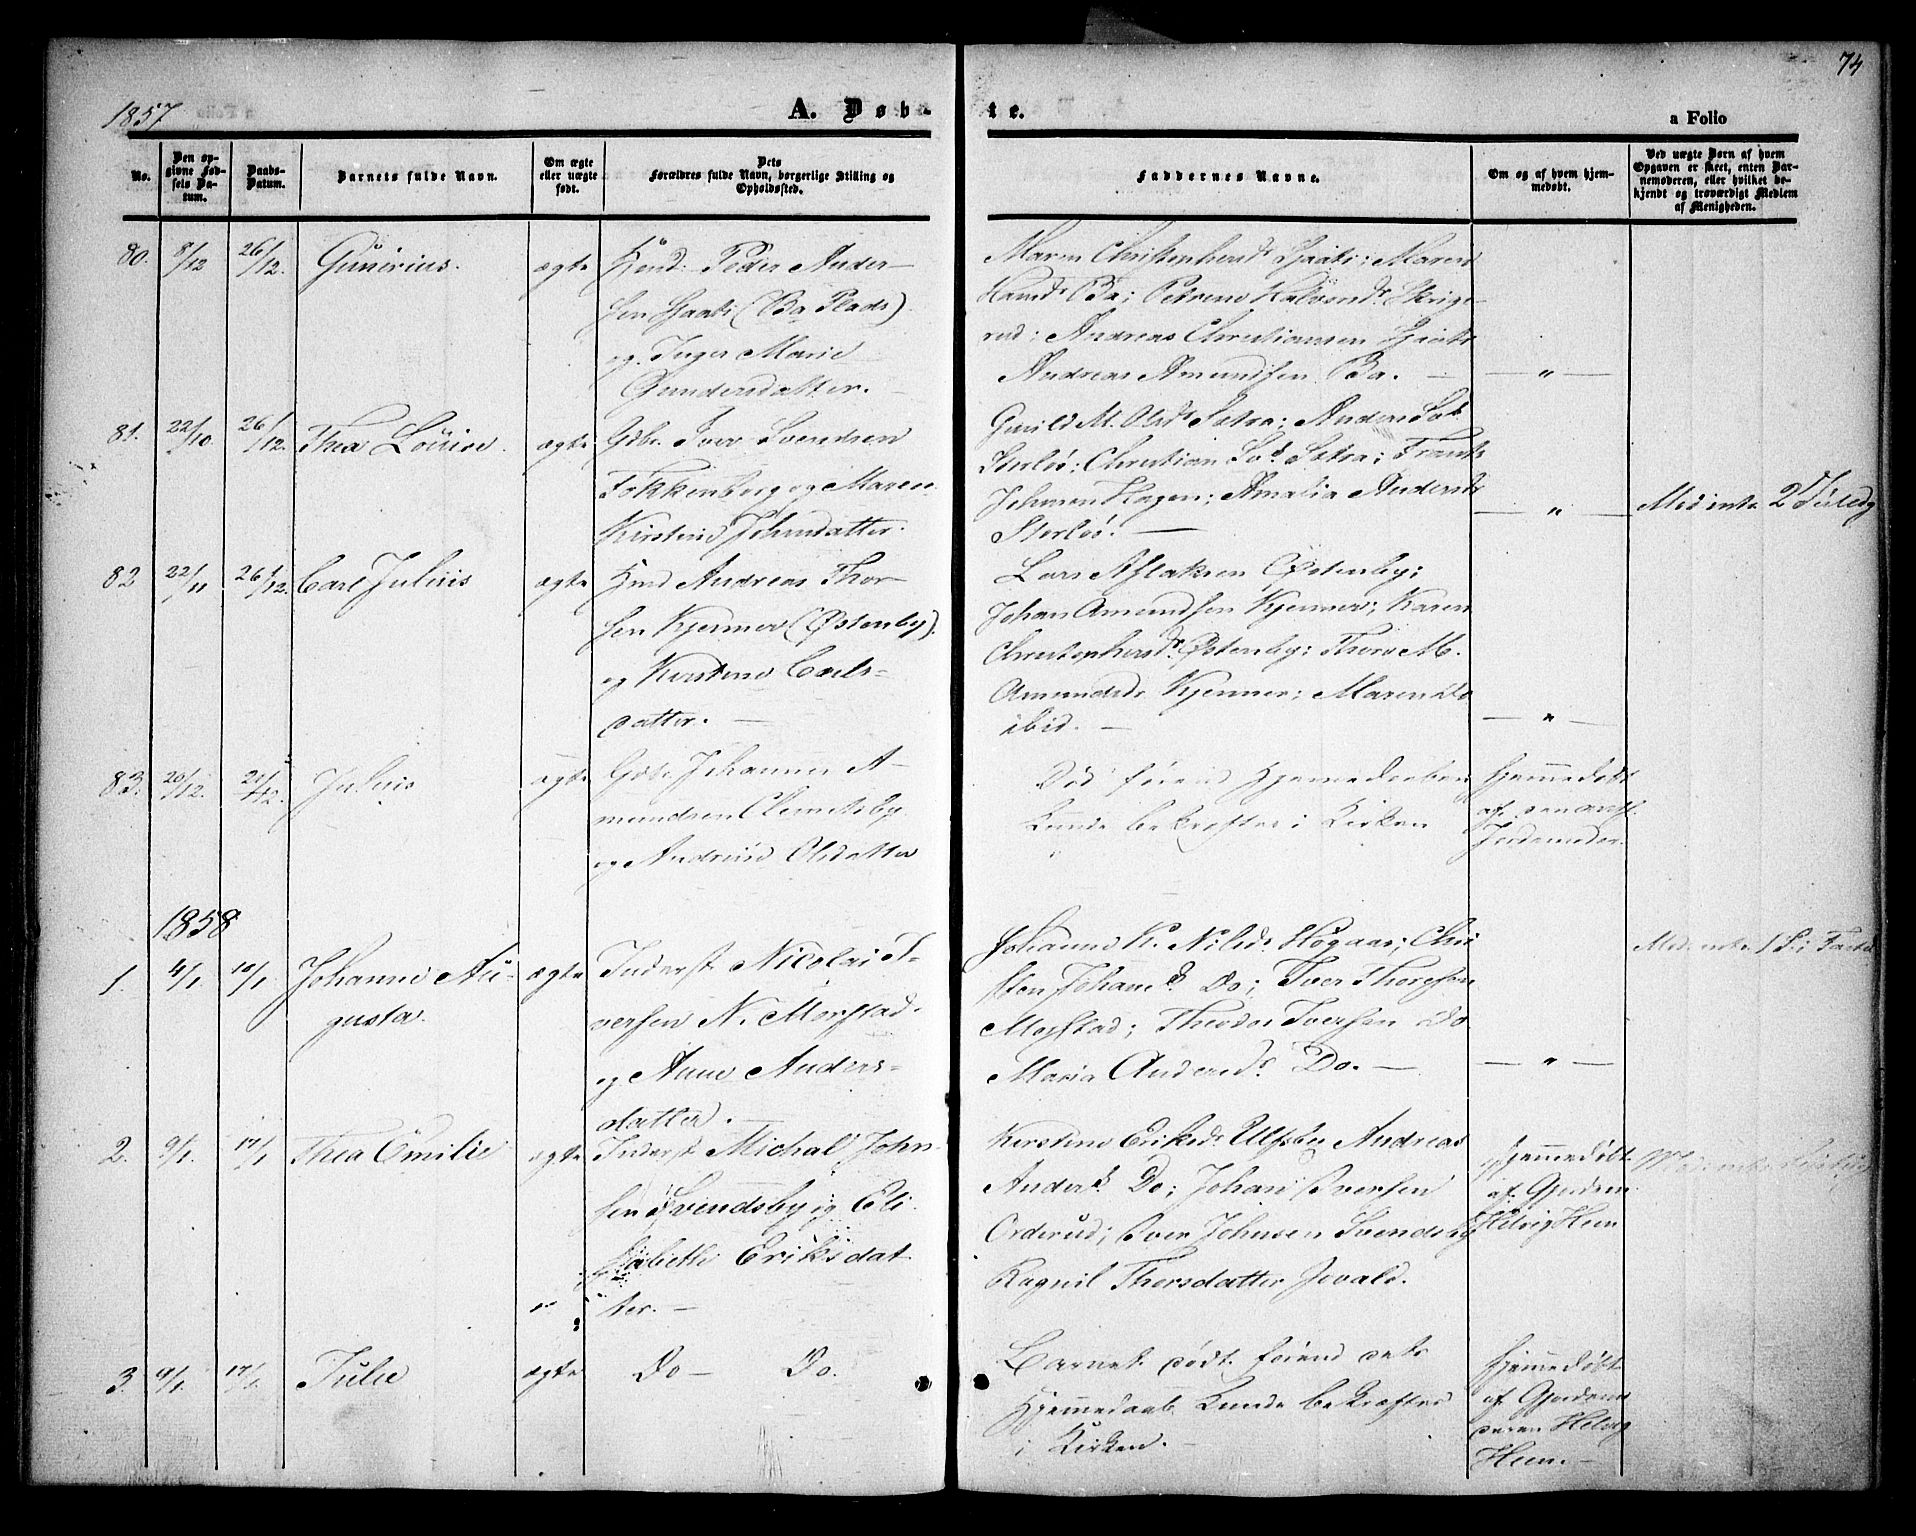 74
1857
A. Døb-
te.
a Folio
No.
Den op-
givne Fød-
sels Da-
tum.
Daabs-
Datum.
Barnets fulde Navn.
Om ægte
eller uægte
født.
Dets
Forældres fulde Navn, borgerlige Stilling og
Opholdssted.
Faddernes Navne.
Om og af hvem hjem-
medøbt.
Ved uægte Børn af hvem
Opgaven er skeet, enten Bar-
nemoderen, eller hvilket be-
kjendt og troværdigt Medlem
af Menigheden.
80. 8/12 26/12. Gunerius. ægte
Peder Ander-
sen Haats (Ba Plads)
og Inger Marie
Gundersdatter. —
Maren
Ba; Petrine Halvorsdr Skrige-
rud; Andreas Christiansen
Andreas Amundsen Ba. —
— " —
81. 22/10. 26/12. Thea Lovise. ægte
Gdbr. Iver Svendsen
Fokkenberg og Maren
Kirstine Johnsdatter.
M. Olsdr Sætra; Anders
Sterløs; Christian Sætra; Frants
Johnsen Hagen; Amalia Andersdr
Sterløs. —
— " —
2 Juledg
82 22/11 26/12. Carl Julius ægte
Andreas Thor-
sen Kjenner (Østenby).
og Kirstine Carls-
datter. —
Lars Aslaksen Østenby;
Johan Amundsen Kjenner; Karen
Christophersdr. Østenby; Thora M.
Amundsdr Kjenner; Maren Do
ibid. —
— " —
83. 20/12. 21/12. Julius ægte
Gdbr. Johannes A-
mundsen Clemetsby
og Andrine Olsdatter
Død førend Hjemmedaaben
kunde bekræftes i Kirken
Hjemmedøbt
af
Jordemoder.
1858
1. 4/1 10/1 Johanne Au-
gusta. ægte
Inderst Nicolai I-
versen N. Morstad.
og Anne Anders-
datter. —
Johanne K. Nilsdr Høgaas; Chri
sten Johans. Do; Iver Thoresen
Morstad; Theodor Iversen Do
Maria Andersdr. Do. —
— " —
2. 9/1. 17/1 Thea Emilie ægte
Inderst Michal John-
sen Svendsby og Eli-
sabeth Eriksdat
ter. —
Kirstine Eriksdr Ulfsby Andreas
Anders. Do; Johan Iversen
Orderud; Iver Johnsen Svendsby
Ragnil Thorsdatter Jovald.
Hjemmedøbt
af Gjordem.
Helvig Hem
3. 9/1. 17/1. Julie ægte
Do — Do.
Barnet dødt førend dets
Hjemmedaab kunde bekræftes
i Kirken. —
Hjemmedøbt
af Gjordem
Helvig
Hem. —